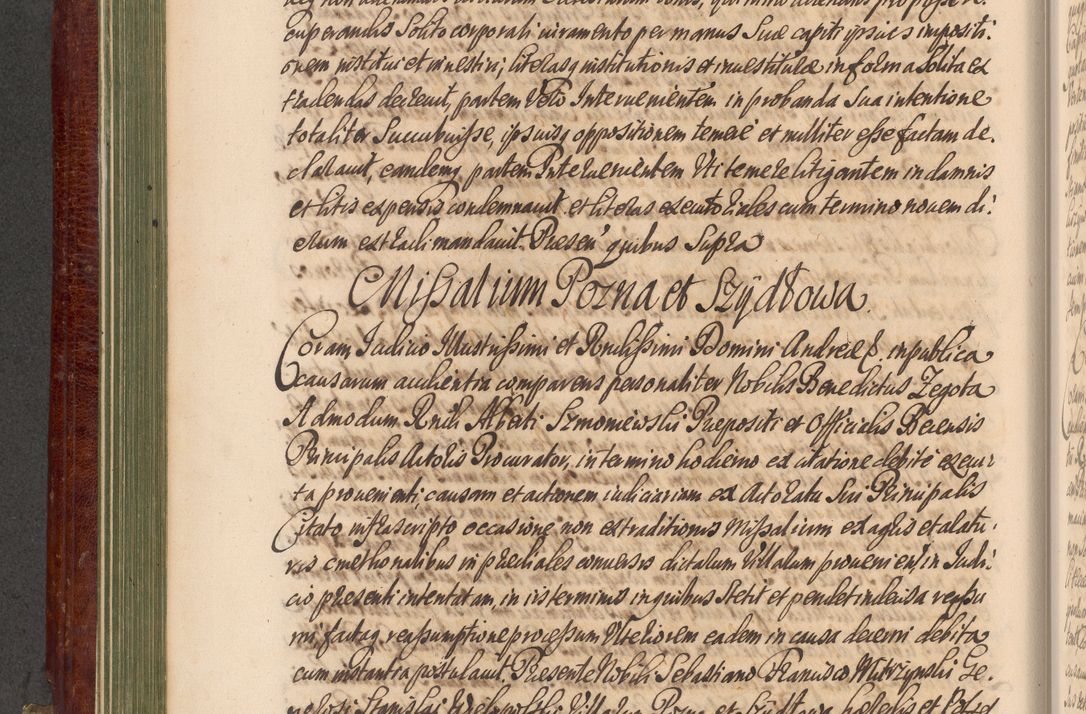 cuperandis Solito corporali iuramento per manus Suae capiti ipsius impositi:
onem institui et investiri; literasq institutionis et investiturae in forma solita ex
tradendas decrevit, partem Vero Intervenientem in probanda Sua intentione
totaliter Succubuisse, ipsiusq oppositionem temere et nulliter esse factam de:
claravit, eandemq partem Intervenientem Uti temere litigantem in damnis
et litis expensis condemnavit et literas executoriales cum termino novem di:
erum extradi mandavit. Praesen' quibus Supra
Missalium Pozna et Szÿdłowa.
Coram Iudicio Illustrissimi et Rndissimi Domini Andreae &, in publica
causarum audientia comparens personaliter Nobilis Benedictus Zegota
Admodum Rndi Alberti Szmoniewski Praepositi et Officialis Becensis
Principalis Actoris Procurator, in termino hodierno ex citatione debite execu:
ta provenienti, causam et actionem iudiciariam ex Actoratu Sui Principalis
Citato infrascripto occasione non extraditionis Missalium ex agris et alatu:
ris cmethonalibus in praediales conversis dictarum Villarum provenien' in Iudi:
cio praesenti intentatam, in iis terminis in quibus Stetit et pendet indecisa reassu
mi factaq reassumptione processum Ulteriorem eadem in causa decerni debita
cum instantia postulavit. Praesente Nobili Sebastiano Francisco Mietrzynski Ge:
nerosi Stanislai Wielopolski Villarum Pozna et Szÿdłowa